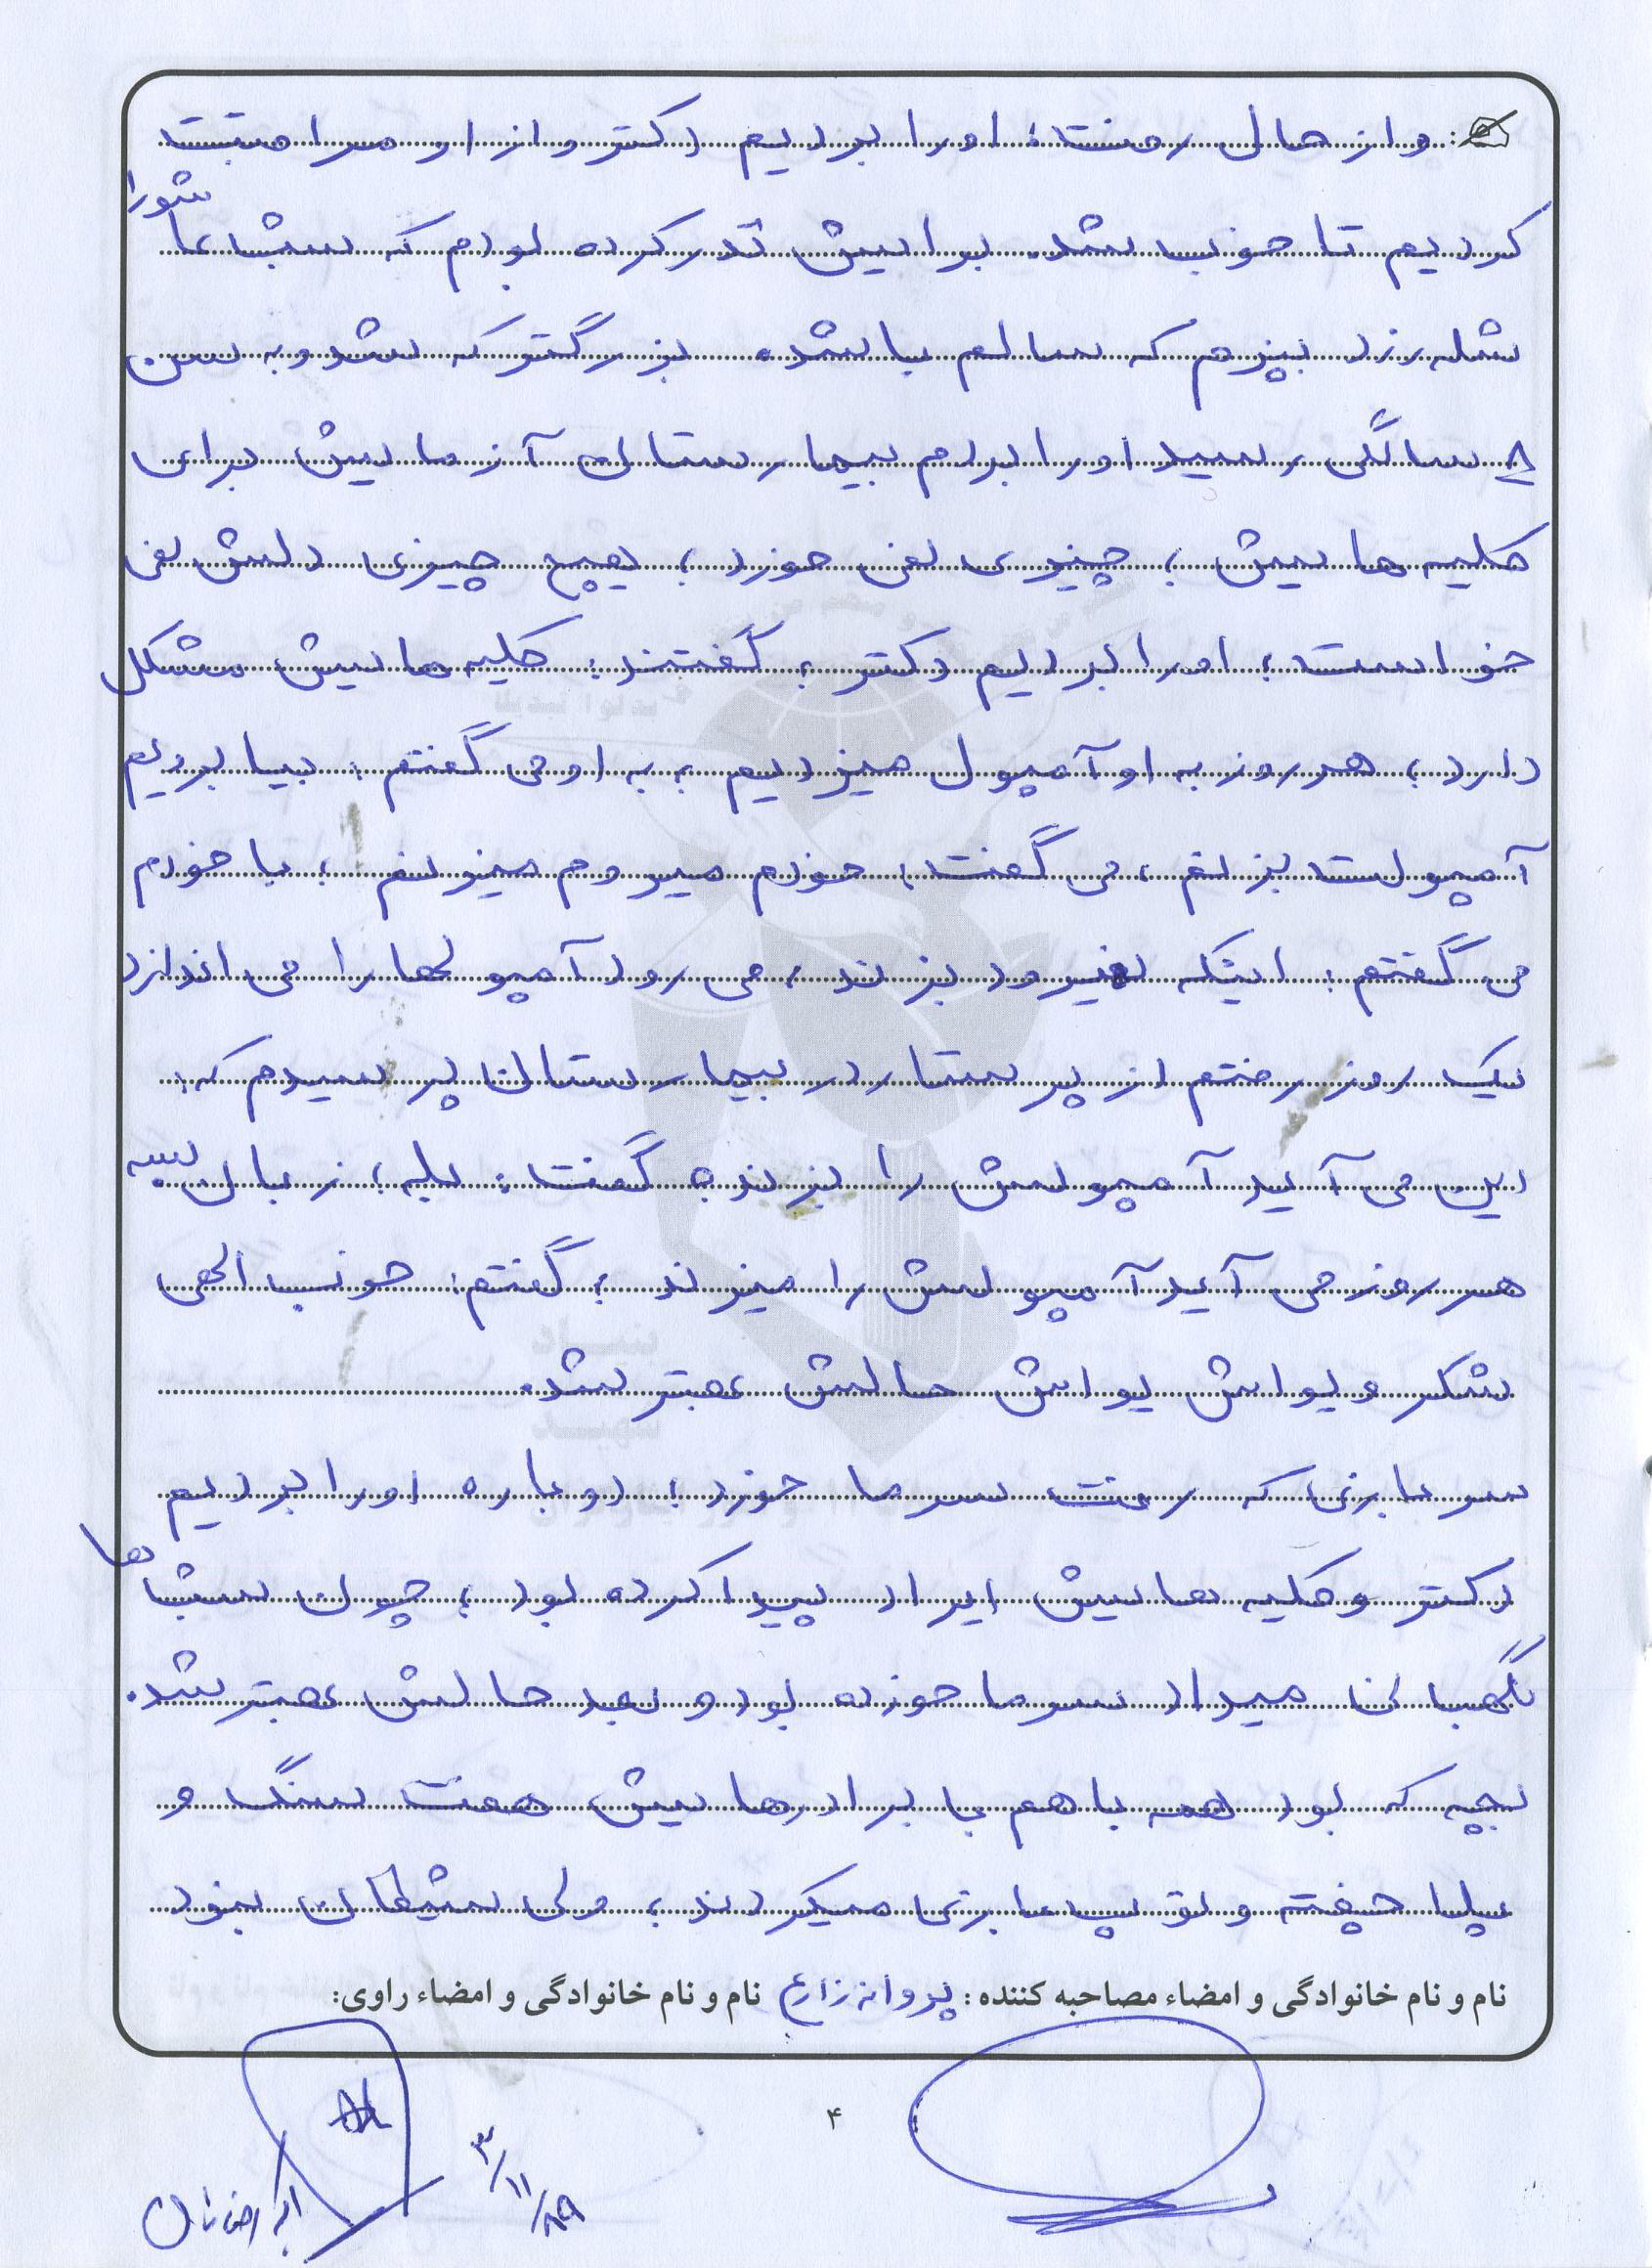 و از حال رفت؛ او را بردیم دکتر و از او مراقبت
کردیم تا خوب شد. برایش نذر کرده بودم که شب عاشورا
شله زرد بپزم که سالم باشد. بزرگتر که شد و به سن
۸ سالگی رسید او را بردم بیمارستان آزمایش برای
کلیه هایش؛ چیزی نمی خورد؛ هیچ چیزی دلش نمی
خواست؛ او را بردیم دکتر؛ گفتند: کلیه هایش مشکل
دارد؛ هر روز به او آمپول میزدیم؛ به او می گفتم: بیا برویم
آمپولت بزنم، می گفت: خودم میروم میزنم؛ با خودم
می گفتم: اینکه نمیرود بزند، می رود آمپولها را می اندازد
یک روز رفتم از پرستار در بیمارستان پرسیدم که:
این می آید آمپولش را بزند؟ گفت: بله؛ زبان بسه
هر روز می آید آمپولش را میزند؛ گفتم: خوب الهی
شکر و یواش یواش حالش بهتر شد.
سربازی که رفت سرما خورد؛ دوباره او را بردیم
دکتر و کلیه هایش ایراد پیدا کرده بود؛ چون شبها
نگهبانی میداد سرما خورده بود و بعد حالش بهتر شد.
بچه که بود همه با هم با برادرهایش هفت سنگ و
پلا چفته و توپ بازی میکردند؛ ولی شیطان نبود
نام و نام خانوادگی و امضاء مصاحبه کننده: پروانه زارع نام و نام خانوادگی و امضاء راوی:
۴
۸۹/۱۱/۳